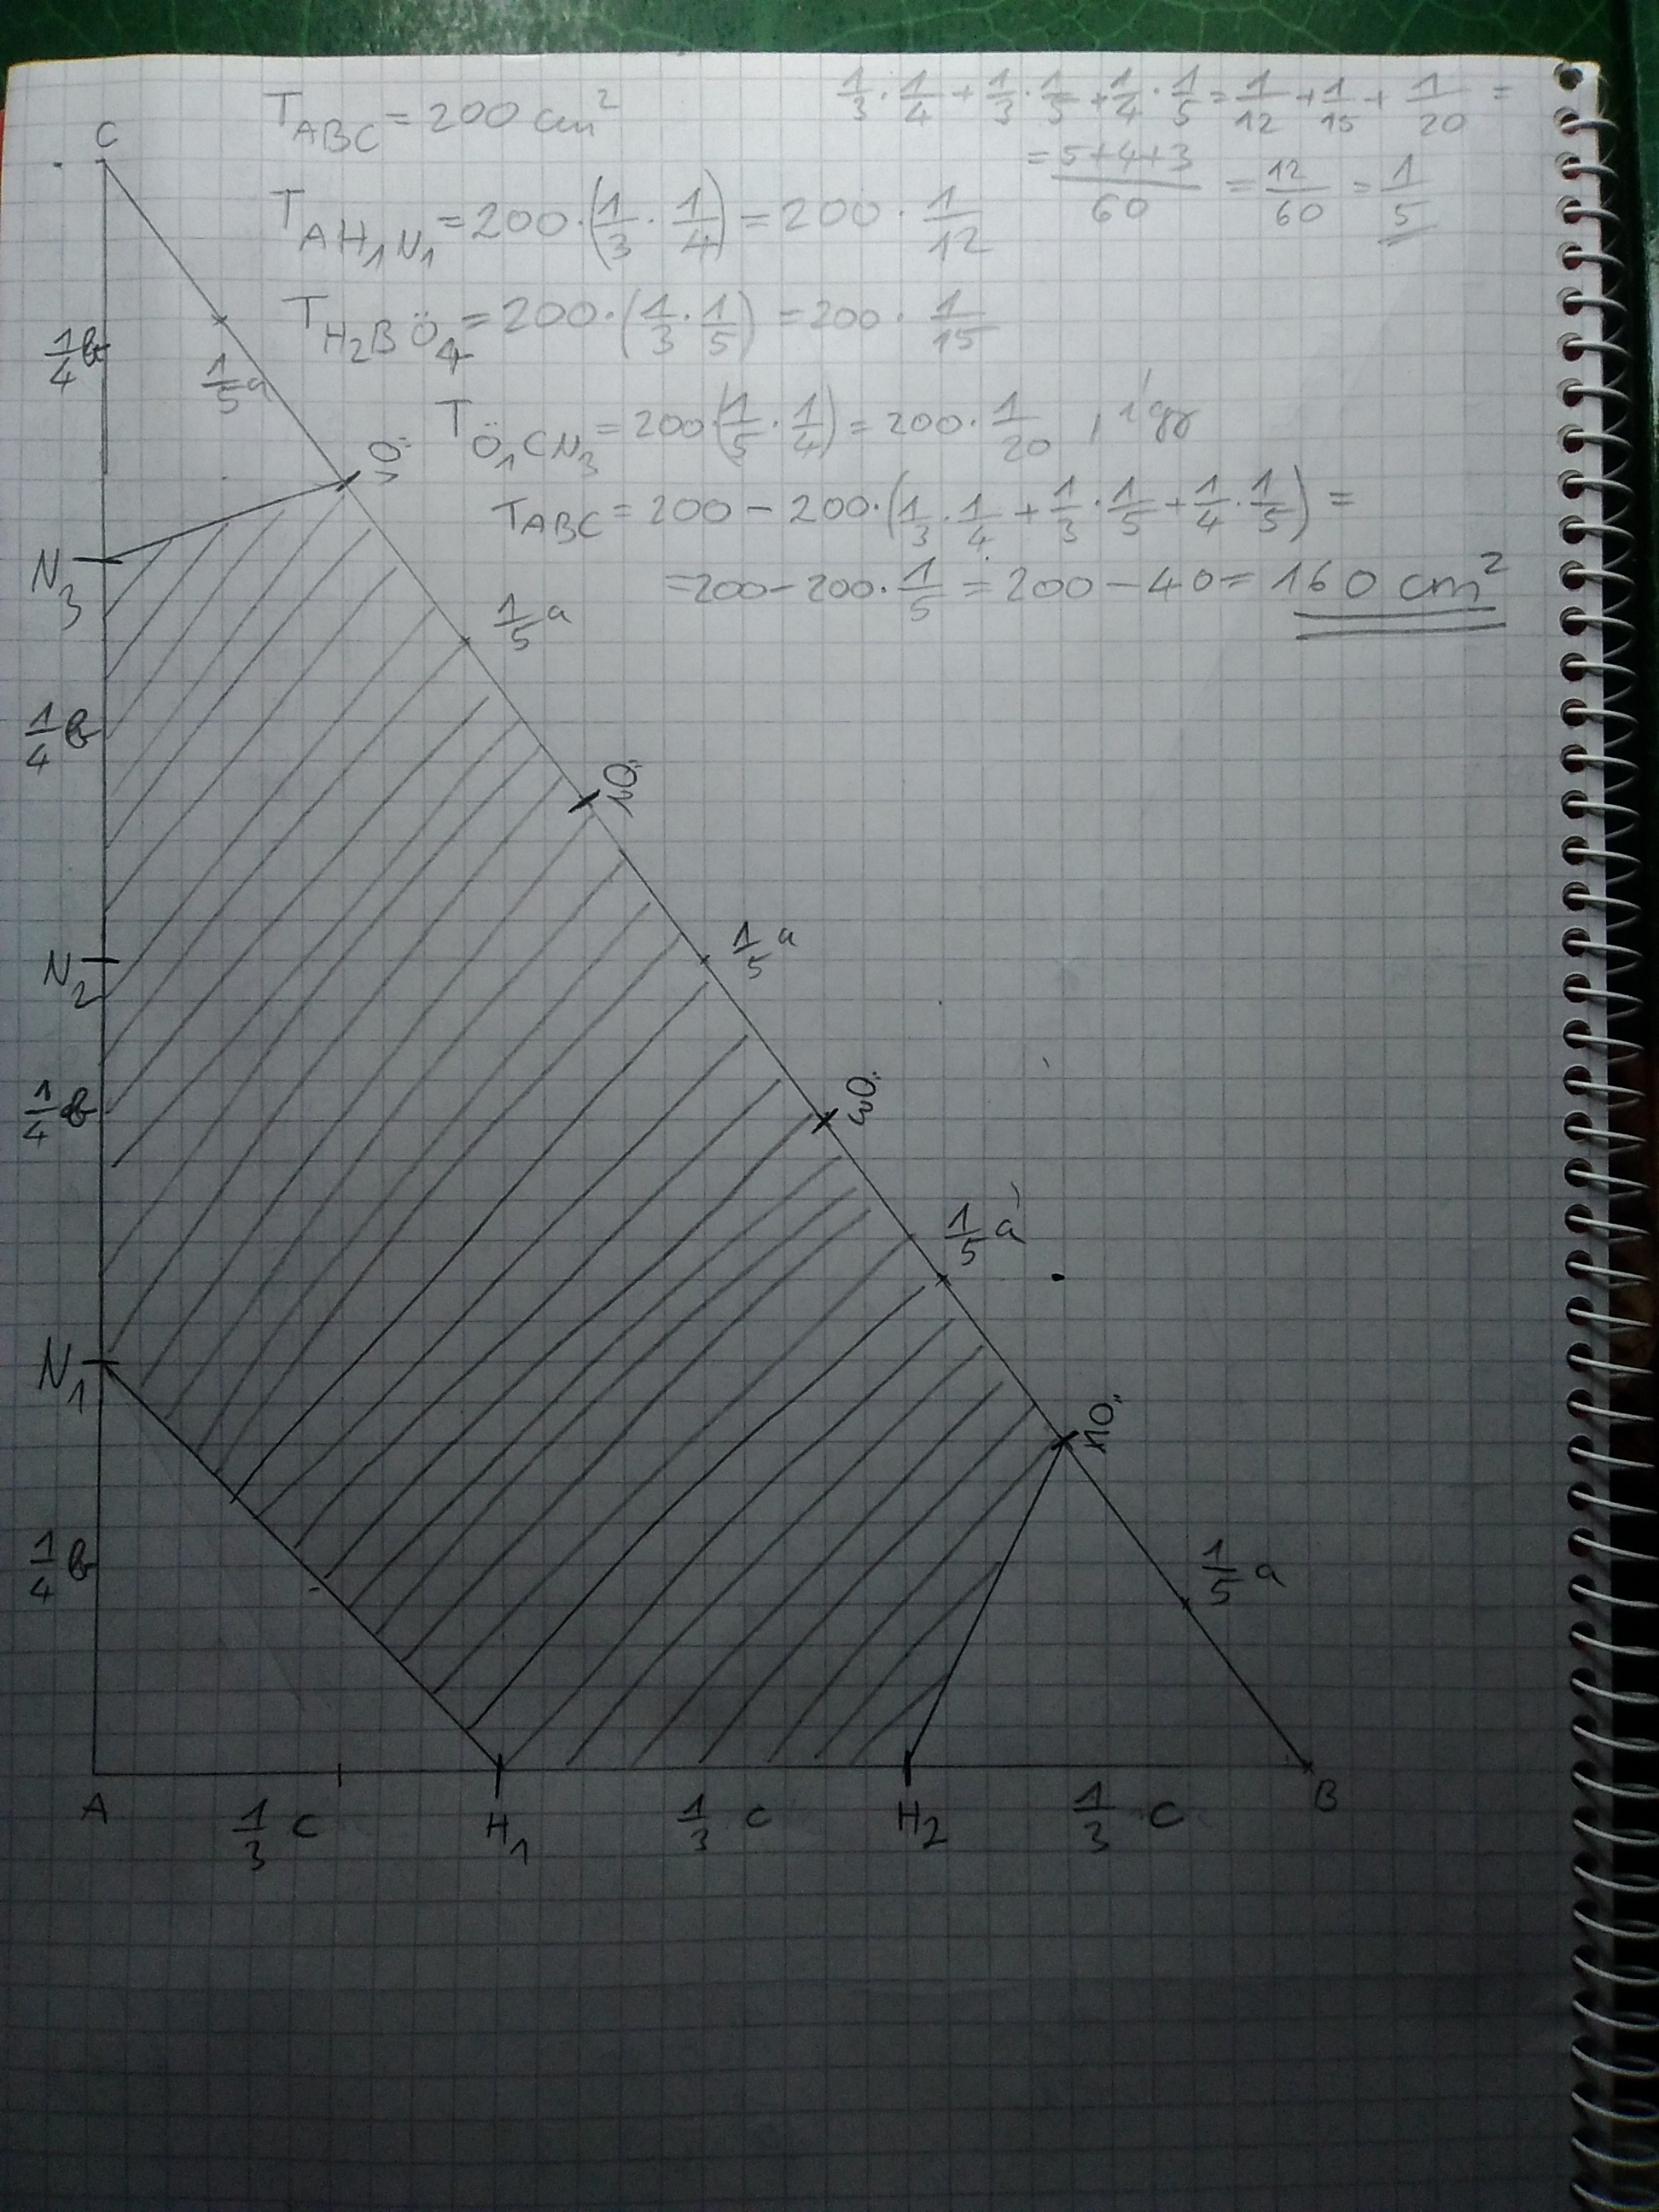 T_ABC = 200 cm²
1/3 · 1/4 + 1/3 · 1/5 + 1/4 · 1/5 = 1/12 + 1/15 + 1/20 =
= (5+4+3)/60 = 12/60 = 1/5
T_AH₁N₁ = 200 · (1/3 · 1/4) = 200 · 1/12
T_H₂BÖ₄ = 200 · (1/3 · 1/5) = 200 · 1/15
T_Ö₁CN₃ = 200 · (1/5 · 1/4) = 200 · 1/20 , így
T_ABC = 200 − 200 · (1/3 · 1/4 + 1/3 · 1/5 + 1/4 · 1/5) =
= 200 − 200 · 1/5 = 200 − 40 = 160 cm²
C
1/4 b
1/5 a
Ö₁
N₃
1/5 a
1/4 b
Ö₂
N₂
1/5 a
1/4 b
Ö₃
1/5 a
N₁
Ö₄
1/4 b
1/5 a
A
1/3 c
H₁
1/3 c
H₂
1/3 c
B